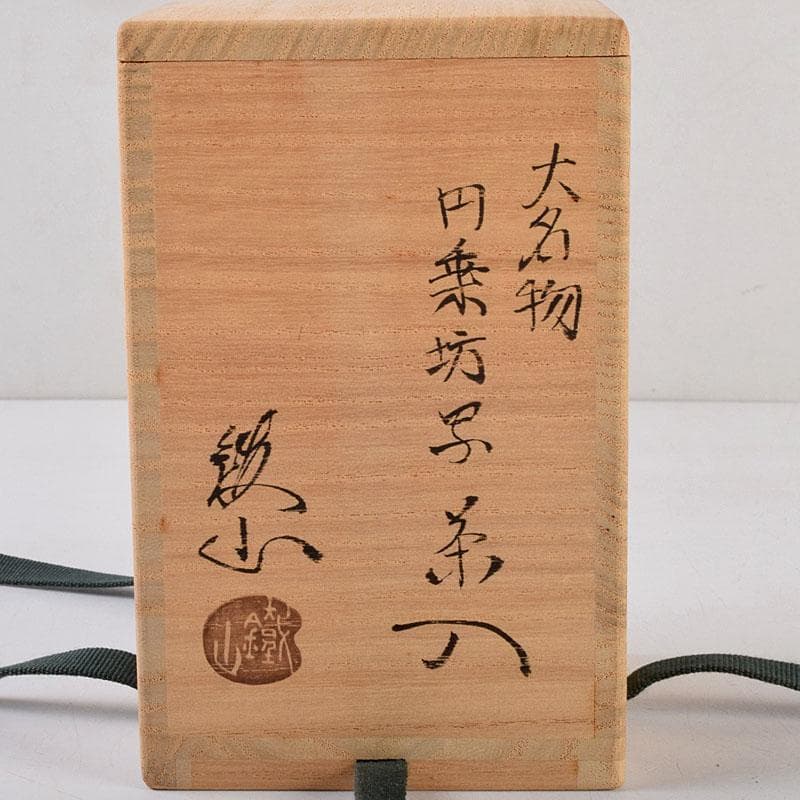 大名物
円乗坊写茶入
鉄山
鐵山